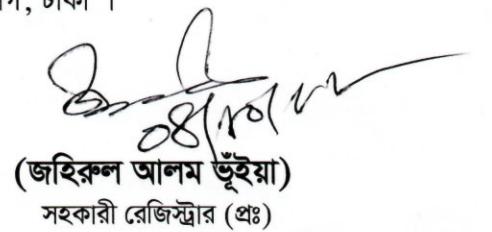 ঢাকা ।
(জহিরুল আলম ভূঁইয়া)
সহকারী রেজিস্ট্রার (প্রঃ)